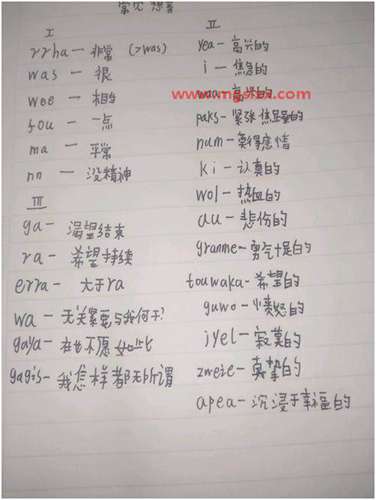 常见 想音
I
rrha — 非常 (>was)
was — 很
wee — 相当
fou — 一点
ma — 平常
nn — 没精神
III
ga — 渴望结束
ra — 希望持续
erra — 大于ra
wa — 无关紧要与我何干?
gaya — 在也不愿如此
gagis — 我怎样都无所谓
II
yea — 高兴的
i — 焦急的
www.masker.com
waa — 高兴的
paks — 紧张焦虑的
num — 莫得感情
ki — 认真的
wol — 热血的
au — 悲伤的
granme — 勇气十足的
touwaka — 希望的
guwo — 愤怒的
iyel — 寂寞的
zweie — 真挚的
apea — 沉浸于幸福的